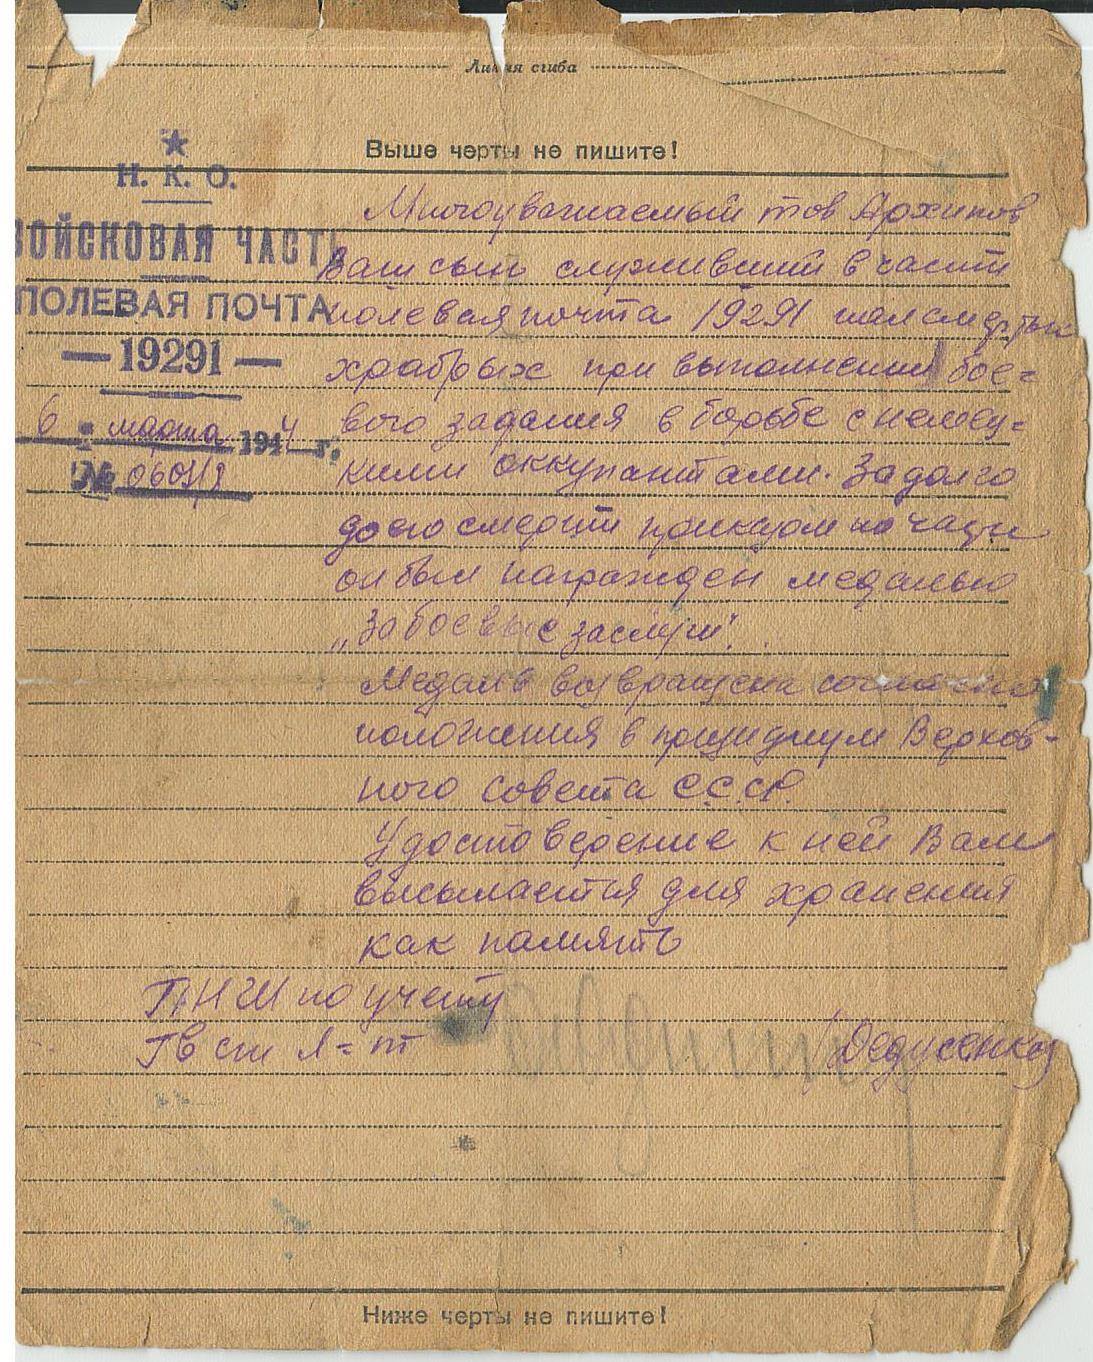 Линия сгиба
Выше черты не пишите!
Н. К. О.
ВОЙСКОВАЯ ЧАСТЬ
ПОЛЕВАЯ ПОЧТА
— 19291 —
6 марта 1944 г.
№
Многоуважаемый тов Архипов
Ваш сын служивший в части
полевая почта 19291 пал смертью
храбрых при выполнении бое=
вого задания в борьбе с немец=
кими оккупантами. Задолго
до его смерти приказом по части
он был награжден медалью
„За боевые заслуги".
Медаль возвращена согласно
положения в президиум Верхов-
ного совета С.С.С.Р.
Удостоверение к ней Вам
высылается для хранения
как память
ПНШ по учету
Гв ст л=т /Дедусенко/
Ниже черты не пишите!